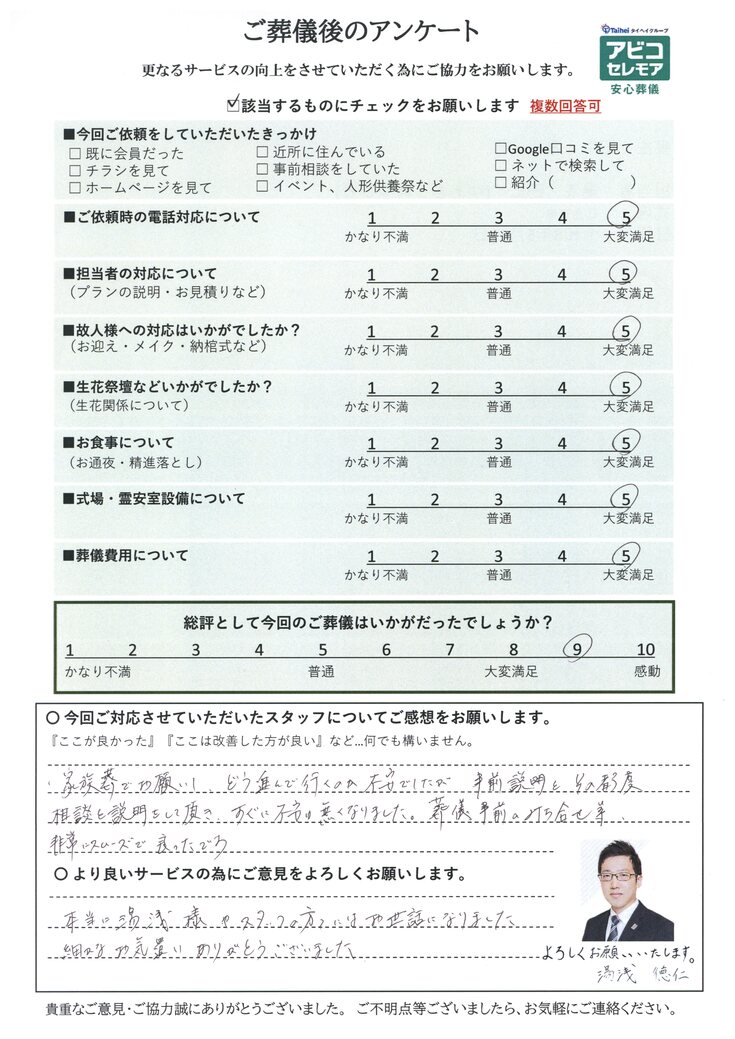 ご葬儀後のアンケート
Taihei タイヘイグループ
アビコ
セレモア
安心葬儀
更なるサービスの向上をさせていただく為にご協力をお願いします。
☑該当するものにチェックをお願いします 複数回答可
■今回ご依頼をしていただいたきっかけ
□ 既に会員だった □ 近所に住んでいる □Google口コミを見て
□ チラシを見て □ 事前相談をしていた □ ネットで検索して
□ ホームページを見て □ イベント、人形供養祭など □ 紹介（ ）
■ご依頼時の電話対応について 1 2 3 4 5
かなり不満 普通 大変満足
■担当者の対応について 1 2 3 4 5
（プランの説明・お見積りなど） かなり不満 普通 大変満足
■故人様への対応はいかがでしたか？ 1 2 3 4 5
（お迎え・メイク・納棺式など） かなり不満 普通 大変満足
■生花祭壇などいかがでしたか？ 1 2 3 4 5
（生花関係について） かなり不満 普通 大変満足
■お食事について 1 2 3 4 5
（お通夜・精進落とし） かなり不満 普通 大変満足
■式場・霊安室設備について 1 2 3 4 5
かなり不満 普通 大変満足
■葬儀費用について 1 2 3 4 5
かなり不満 普通 大変満足
総評として今回のご葬儀はいかがだったでしょうか？
1 2 3 4 5 6 7 8 9 10
かなり不満 普通 大変満足 感動
〇 今回ご対応させていただいたスタッフについてご感想をお願いします。
『ここが良かった』『ここは改善した方が良い』など…何でも構いません。
家族葬でお願いし、どう進んで行くのか不安でしたが 事前説明と その都度
相談と説明をして頂き、すぐに不安は無くなりました。葬儀事前の打ち合せ等、
非常にスムーズで 良かったです
〇 より良いサービスの為にご意見をよろしくお願いします。
本当に湯浅様やスタッフの方々にはお世話になりました
細かなお気遣い ありがとうございました
よろしくお願いいたします。
湯浅 徳仁
貴重なご意見・ご協力誠にありがとうございました。 ご不明点等ございましたら、お気軽にご連絡ください。